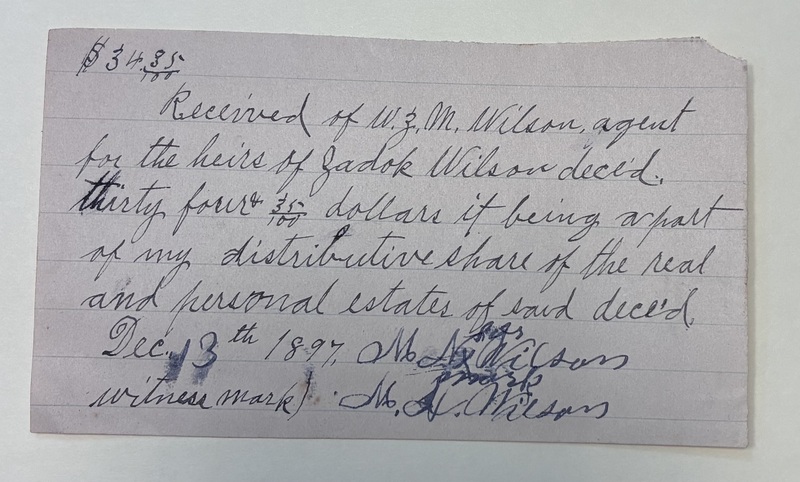 $34.35/100
Received of W. Z. M. Wilson, agent
for the heirs of Zadok Wilson dece'd.
thirty four & 35/100 dollars it being a part
of my distributive share of the real
and personal estates of said dece'd.
Dec. 13th 1897, M. A. his x mark Wilson
witness mark) M. A. Wilson